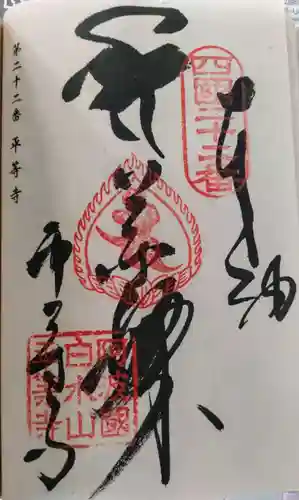 奉納
四國二十二番
薬師
阿波國
白水山
平等寺
平等寺
第二十二番 平等寺